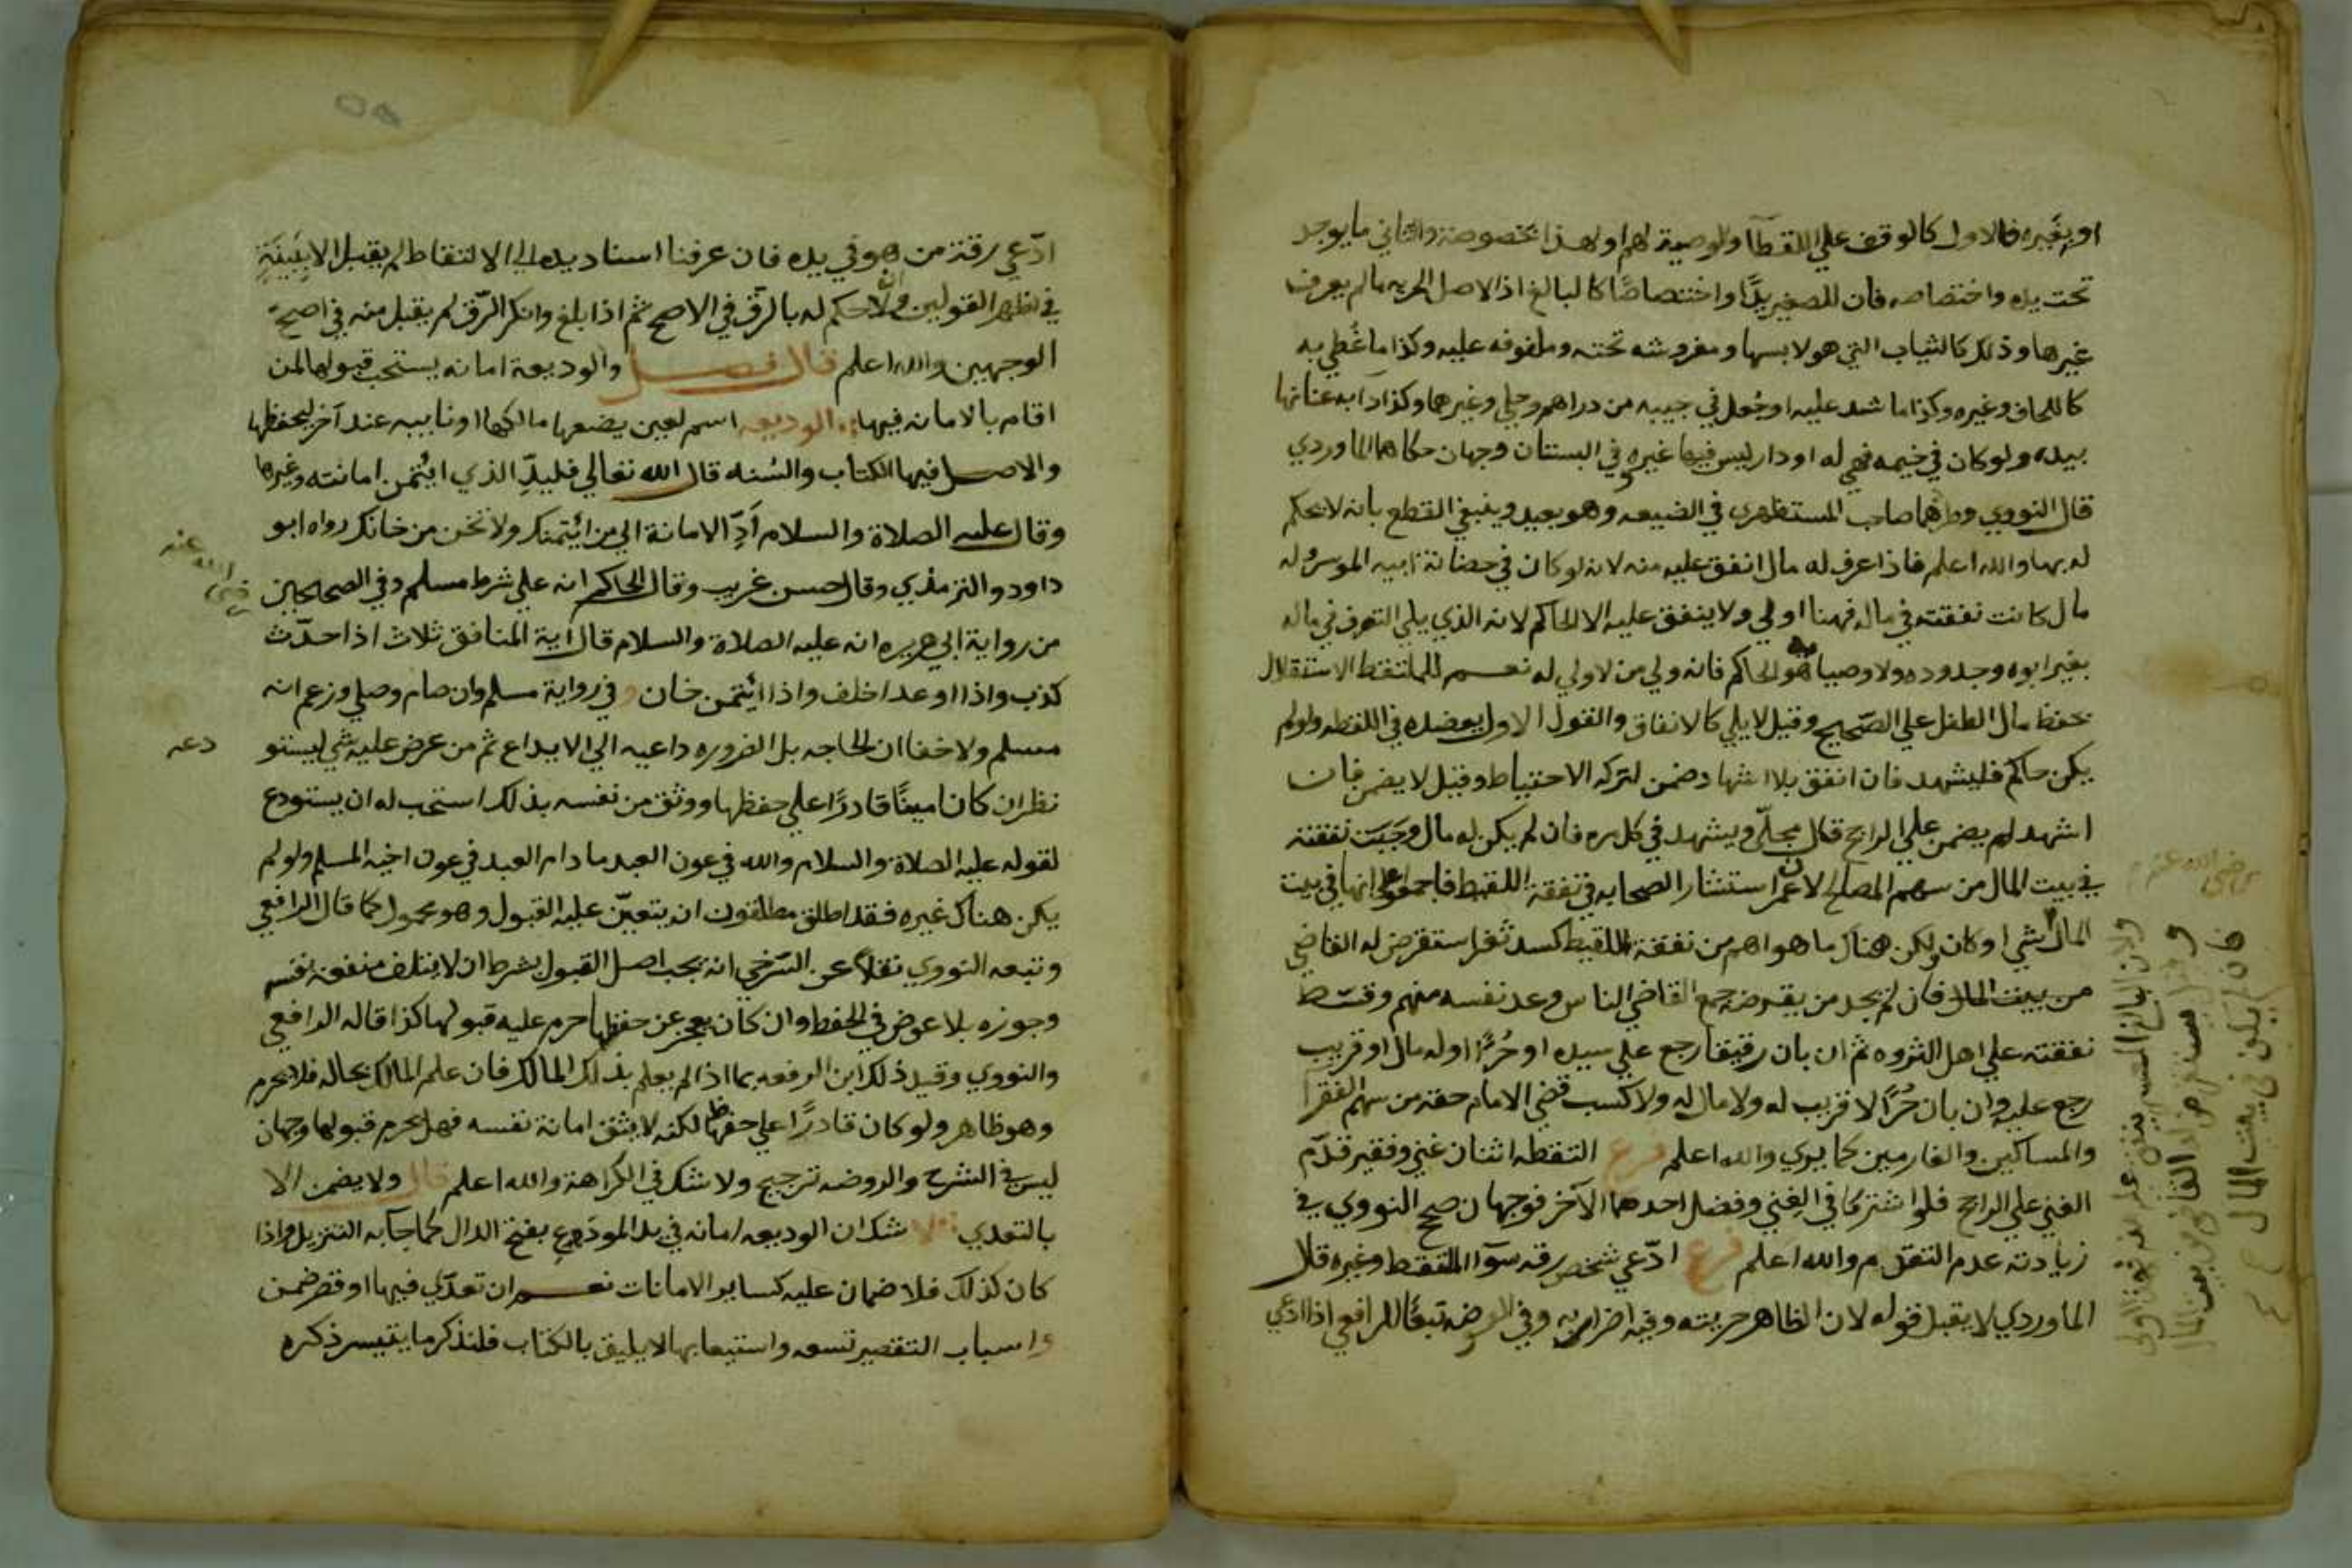 او بغيره فالاول كالوقف علي اللقطآ والوصية لهم او لهذا بخصوصه والثاني ما يوجد
تحت يده واختصاصه فان للصغير يدًا واختصاصًا كالبالغ اذ الاصل الحريه ما لم يعرف
غيرها وذلك كالثياب التي هو لابسها ومفروشه تحته وملفوفه عليه وكذا ما غُطي به
كاللحاف وغيره وكذا ما شد عليه او جُعل في جيبه من دراهم وحلي وغيرهما وكذا دابه عنانها
بيده ولو كان في خيمه فهي له او دار ليس فيها غيره وفي البستان وجهان حكاهما الماوردي
قال النووي وطردهما صاحب المستظهري في الضيعه وهو بعيد وينبغي القطع بانه لا يحكم
له بها والله اعلم فاذا عرف له مال انفق عليه منه لانه لو كان في حضانة ابيه الموسر وله
مال كانت نفقته في ماله فهنا اولي ولا ينفق عليه الا الحاكم لانه الذي يلي التصرف في ماله
بغير ابوه وجدوده ولا وصيا هو الحاكم فانه ولي من لا ولي له نعم للملتقط الاستقلال
بحفظ مال الطفل علي الصحيح وقيل لا يلي كالانفاق والقول الاول يعضده في اللقطه ولو لم
يكن حاكم فليشهد فان انفق بلا اشهاد ضمن لتركه الاحتياط وقيل لا يضمن فان
اشهد لم يضمن علي الراجح قال مجلّي ويشهد في كل مره فان لم يكن له مال وجَبَت نفقته
في بيت المال من سهم المصالح لان عمر استشار الصحابه في نفقة اللقيط فاجمعوا علي انها في بيت
المال شي او كان ولكن هناك ما هو اهم من نفقة اللقيط كسد ثغر استقرض له القاضي
من بيت المال فان لم يجد من يقرضه جمع القاضي الناس وعد نفسه منهم وقسّط
نفقته علي اهل الثروه ثم ان بان رقيقا رجع علي سيده او حُرًّا وله مال او قريب
رجع عليه وان بان حُرًّا لا قريب له ولا مال له ولا كسب قضي الامام حقه من سهم الفقرا
والمساكين والغارمين كما يري والله اعلم فرع التقطه اثنان غني وفقير قدّم
الغني علي الراجح فلو اشتركا في الغِني وفضل احدهما الآخر فوجهان صحح النووي في
زيادته عدم التقدم والله اعلم فرع ادّعي شخص رقه سوآ الملتقط وغيره قال
الماوردي لا يقبل قوله لان الظاهر حريته وفيه اضرار به وفي الروضه تبعًا للرافعي اذا ادعي
رضي الله عنه
فان لم يكن في بيت المال
ادّعي رقه من هو في يده فان عرفنا اسناد يده الي الالتقاط لم يقبل الا ببينَةٍ
في اظهر القولين والا حكم له بالرّق في الاصح ثم اذا بلغ وانكر الرّق لم يقبل منه في اصح
الوجهين والله اعلم قال فصل والوديعة امانه يستحب قبولها لمن
اقام بالامانه فيها الوديعه اسم لعين يضعها مالكها او ناييبه عند آخر ليحفظها
والاصل فيها الكتاب والسُنه قال الله تعالي فليدِّ الذي ائتمن امانته وغيرها
وقال عليه الصلاة والسلام اَدِّ الامانة الي من ائتمنك ولا تخن من خانك رواه ابو
داود والترمذي وقال حسن غريب وقال الحاكم انه علي شرط مسلم وفي الصحيحين
من رواية ابي هريره انه عليه الصلاة والسلام قال آية المنافق ثلاث اذا حدّث
رضي الله عنه
كذب واذا اوعد اخلف واذا ائتمن خان وفي رواية مسلم وان صام وصلي وزعم انه
مسلم ولا خفا ان الحاجه بل الضروره داعيه الي الايداع ثم من عرض عليه شي ليستو
دعه
نظر ان كان امينًا قادرًا علي حفظها ووثق من نفسه بذلك استحب له ان يستودع
لقوله عليه الصلاة والسلام والله في عون العبد ما دام العبد في عون اخيه المسلم ولو لم
يكن هناك غيره فقد اطلق مطلقون انه يتعيّن عليه القبول وهو محمول كما قال الرافعي
وتبعه النووي نقلاً عن السّرخسي انه يجب اصل القبول بشرط ان لا يتلف منفعة نفسه
وجوزه بلا عوض في الحفظ وان كان يعجز عن حفظها حرم عليه قبولها كذا قاله الرافعي
والنووي وقيد ذلك ابن الرفعه بما اذا لم يعلم بذلك المالك فان علم المالك بحاله فلا يحرم
وهو ظاهر ولو كان قادرًا علي حفظها لكنه لا يثق امانة نفسه فهل يحرم قبولها وجهان
ليس في الشرح والروضه ترجيح ولا شك في الكراهة والله اعلم قال ولا يضمن الا
بالتعدي لا شك ان الوديعه امانه في يد المودَع بفتح الدال كما جآ به التنزيل واذا
كان كذلك فلا ضمان عليه كساير الامانات نعم ان تعدّي فيها او قصر ضمن
واسباب التقصير تسعه واستيعابها لا يليق بالكتاب فلنذكر ما يتيسر ذكره